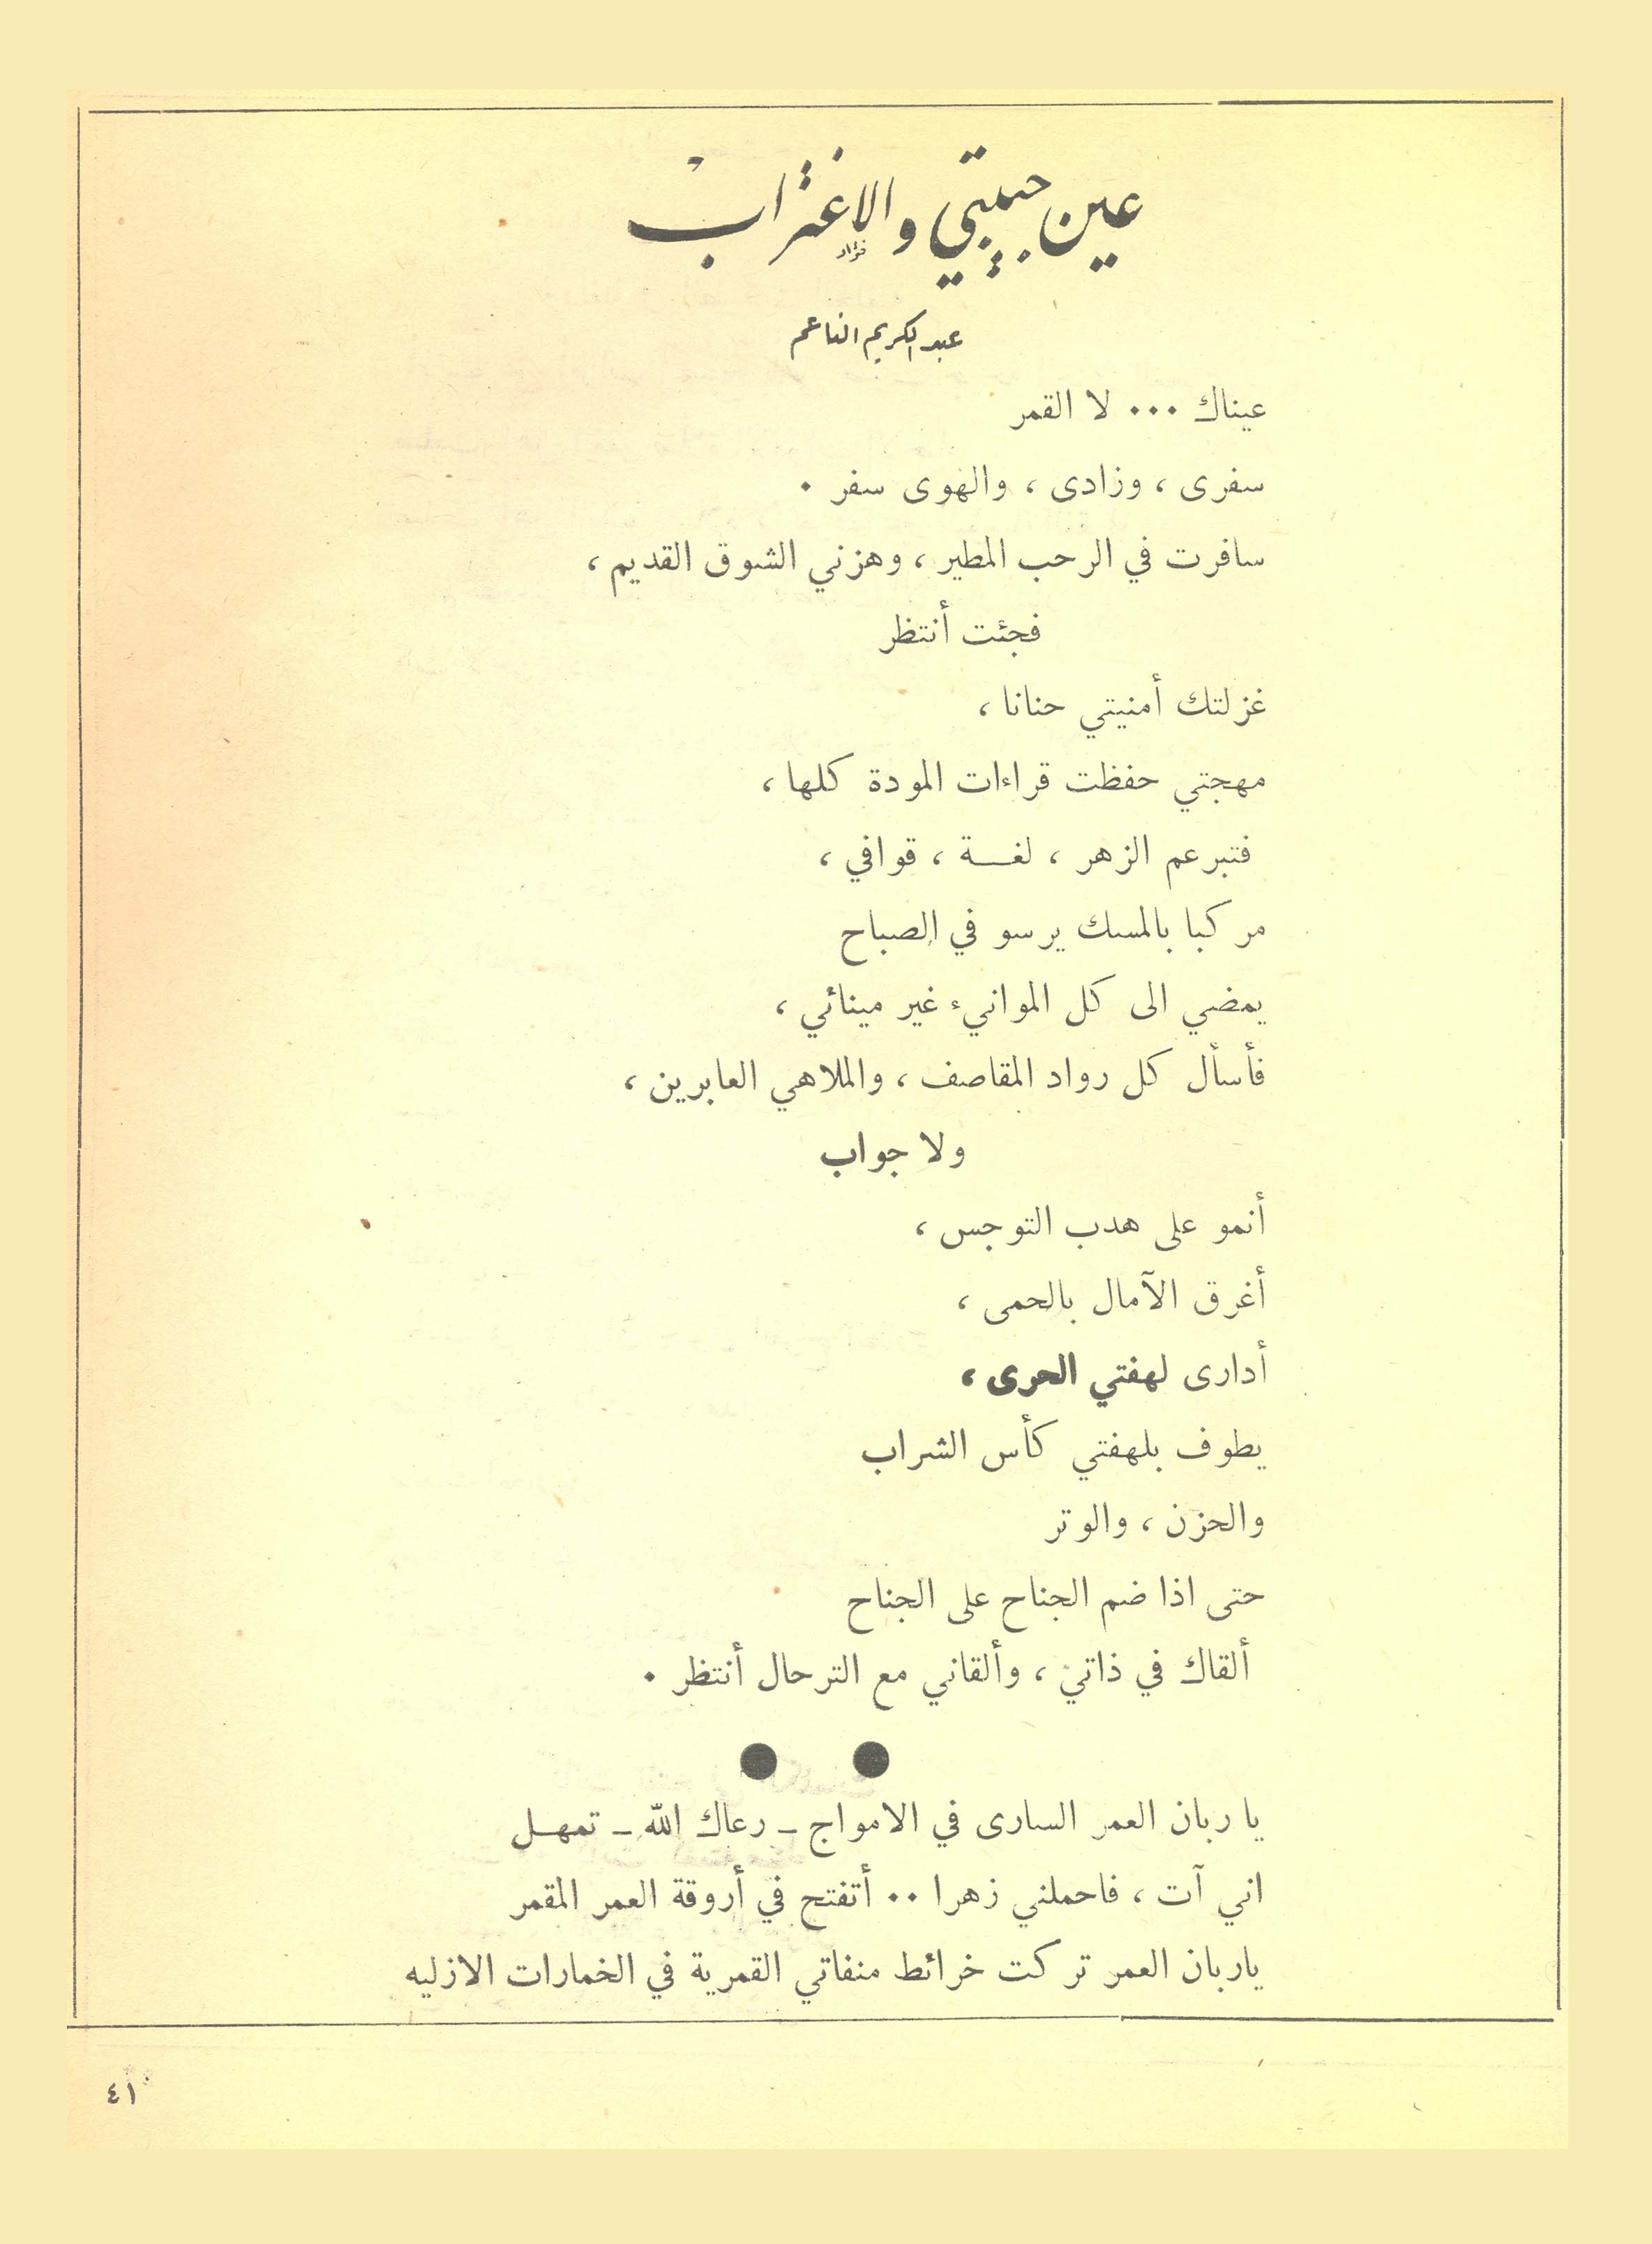 عين حبيبتي والاغتراب
عبد الكريم الناعم
عيناك ... لا القمر
سفرى ، وزادى ، والهوى سفر .
سافرت في الرحب المطير ، وهزني الشوق القديم ،
فجئت أنتظر
غزلتك أمنيتي حنانا ،
مهجتي حفظت قراءات المودة كلها ،
فتبرعم الزهر ، لغـــة ، قوافي ،
مركبا بالمسك يرسو في الصباح
يمضي الى كل الموانيء غير مينائي ،
فأسأل كل رواد المقاصف ، والملاهي العابرين ،
ولا جواب
أنمو على هدب التوجس ،
أغرق الآمال بالحمى ،
أدارى لهفتي الحرى ،
يطوف بلهفتي كأس الشراب
والحزن ، والوتر
حتى اذا ضم الجناح على الجناح
ألقاك في ذاتي ، وألقاني مع الترحال أنتظر .
يا ربان العمر السارى في الامواج ـ رعاك الله ـ تمهـل
اني آت ، فاحملني زهرا .. أتفتح في أروقة العمر المقمر
ياربان العمر تركت خرائط منفاتي القمرية في الخمارات الازليه
٤١